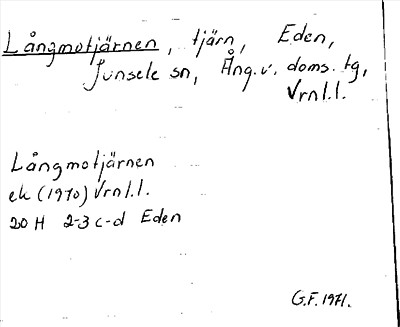 Långmotjärnen, tjärn, Eden,
Junsele sn, Ång.v. doms. tg,
Vrnl.l.
Långmotjärnen
ek (1970) Vrnl.l.
20 H 2-3 c-d Eden
G.F. 1971.